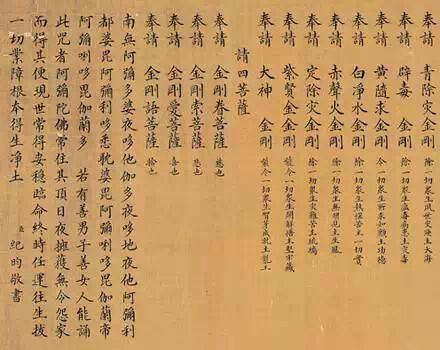 奉請 青除灾金剛 除一切眾生夙世灾殃主大海
奉請 辟毒金剛 除一切眾生瘟毒病患主灾毒
奉請 黃隨求金剛 令一切眾生所求如願主功德
奉請 白淨水金剛 除一切眾生熱惱苦主一切寶
奉請 赤聲火金剛 除一切眾生無明見主生風
奉請 定除灾金剛 除一切眾生灾難苦主琉璃
奉請 紫賢金剛 能令一切眾生開解悟主堅牢藏
奉請 大神金剛 能令一切眾生智芽成就主龍王
請四菩薩
奉請 金剛眷菩薩 慈也
奉請 金剛索菩薩 悲也
奉請 金剛愛菩薩 喜也
奉請 金剛語菩薩 捨也
南無阿彌多婆夜哆他伽多夜哆地夜他阿彌利
都婆毘阿彌唎哆悉耽婆毘阿彌唎哆毘伽蘭帝
阿彌唎哆毘伽蘭多 若有善男子善女人能誦
此咒者阿彌陀佛常住其頂日夜擁護無令怨家
而得其便現世常得安穩臨命終時任運往生拔
一切業障根本得生淨土 臣紀昀敬書